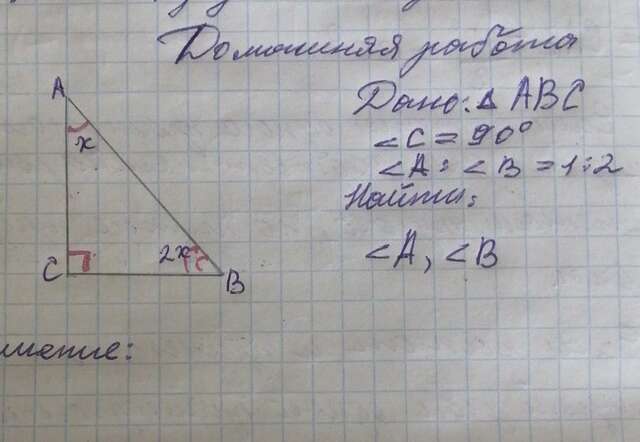 Домашняя работа
Дано: △ ABC
∠C = 90°
∠A : ∠B = 1:2
Найти:
∠A, ∠B
A
x
2x
C
B
шение: